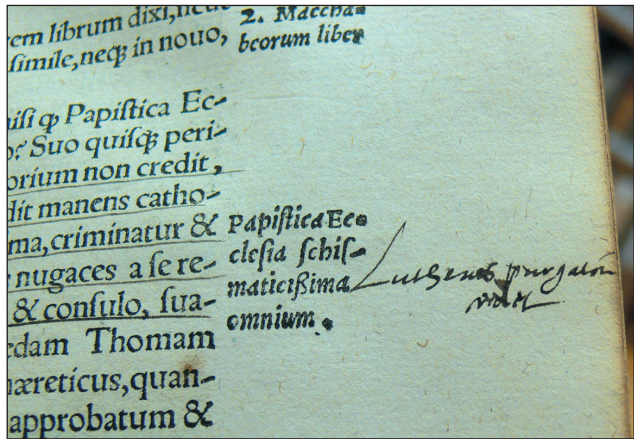 rem librum dixi, sicut
simile, neq; in nouo,
nisi q̃ Papistica Ec-
Suo quisq; peri-
orium non credit,
dit manens catho-
ma, criminatur &
nugaces a se re-
& consulo, sua-
edam Thomam
hæreticus, quan-
approbatum &
2. Maccha-
beorum liber
Papistica Ec-
clesia schis-
maticißima
omnium.
Lutherus purgatoriũ
ridet